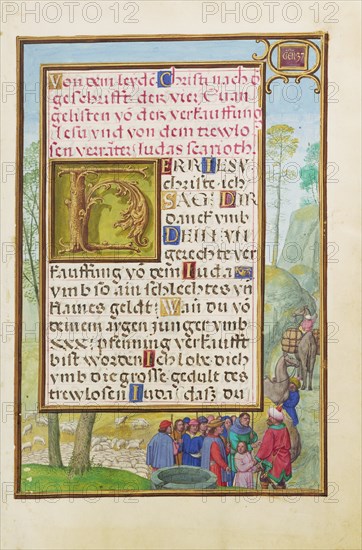 GEN 37
Von dem leydē Christi nach d
geschrifft der vier Euan
gelisten vō der verkauffung
Jesu vnd von dem trewlo
sen verräter Judas scarioth.
HERR IESV
christe ich
SAG DIR
danck vmb
DEIN vn
gerechte ver
kauffung vō dem Iuda
vmb so ain schlechtes vn̄
klaines geldt: Wan̄ du vō
deinem argen junger vmb
xxx: pfenning verkaufft
bist worden Ich lobe dich
vmb die grosse gedult des
trewlosen Iuda: dasz du